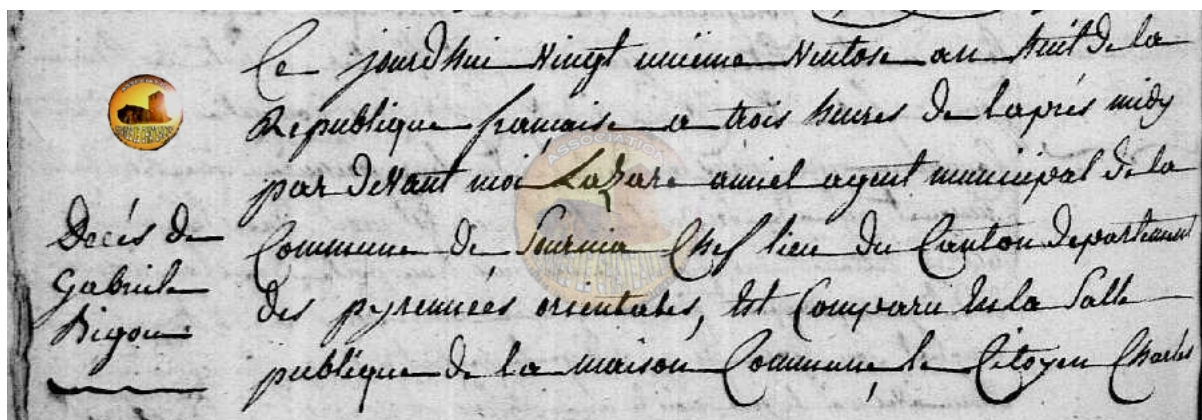 Ce jourdhui Vingt unieme Ventose an huit de la
Republique francaise a trois heures de laprés midy
par devant moi Lazare amiel agent municipal de la
Commune de Sournia Chef lieu du Canton departement
des pyrennées orientales, est Comparu la Salle
publique de la maison Commune, le Citoyen Charles
Decés de
Gabriele
Rigou
ASSOCIATION